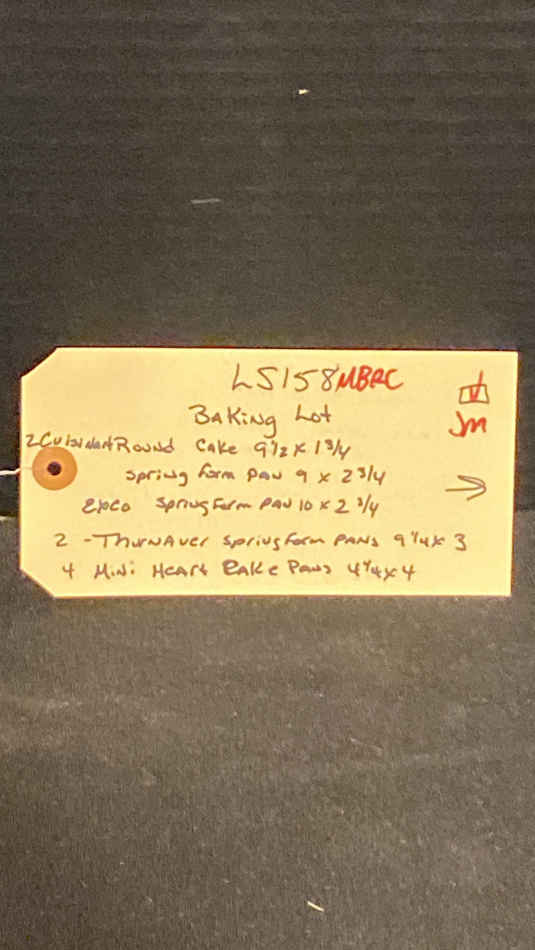 LS158 MBRC
Baking Lot
2 Cuisinart Round Cake 9 1/2 x 1 3/4
Spring form pan 9 x 2 3/4
Ekco Springform pan 10 x 2 3/4
2 - Thurnauer springform pans 9 1/4 x 3
4 Mini Heart Cake Pans 4 1/4 x 4
Jm